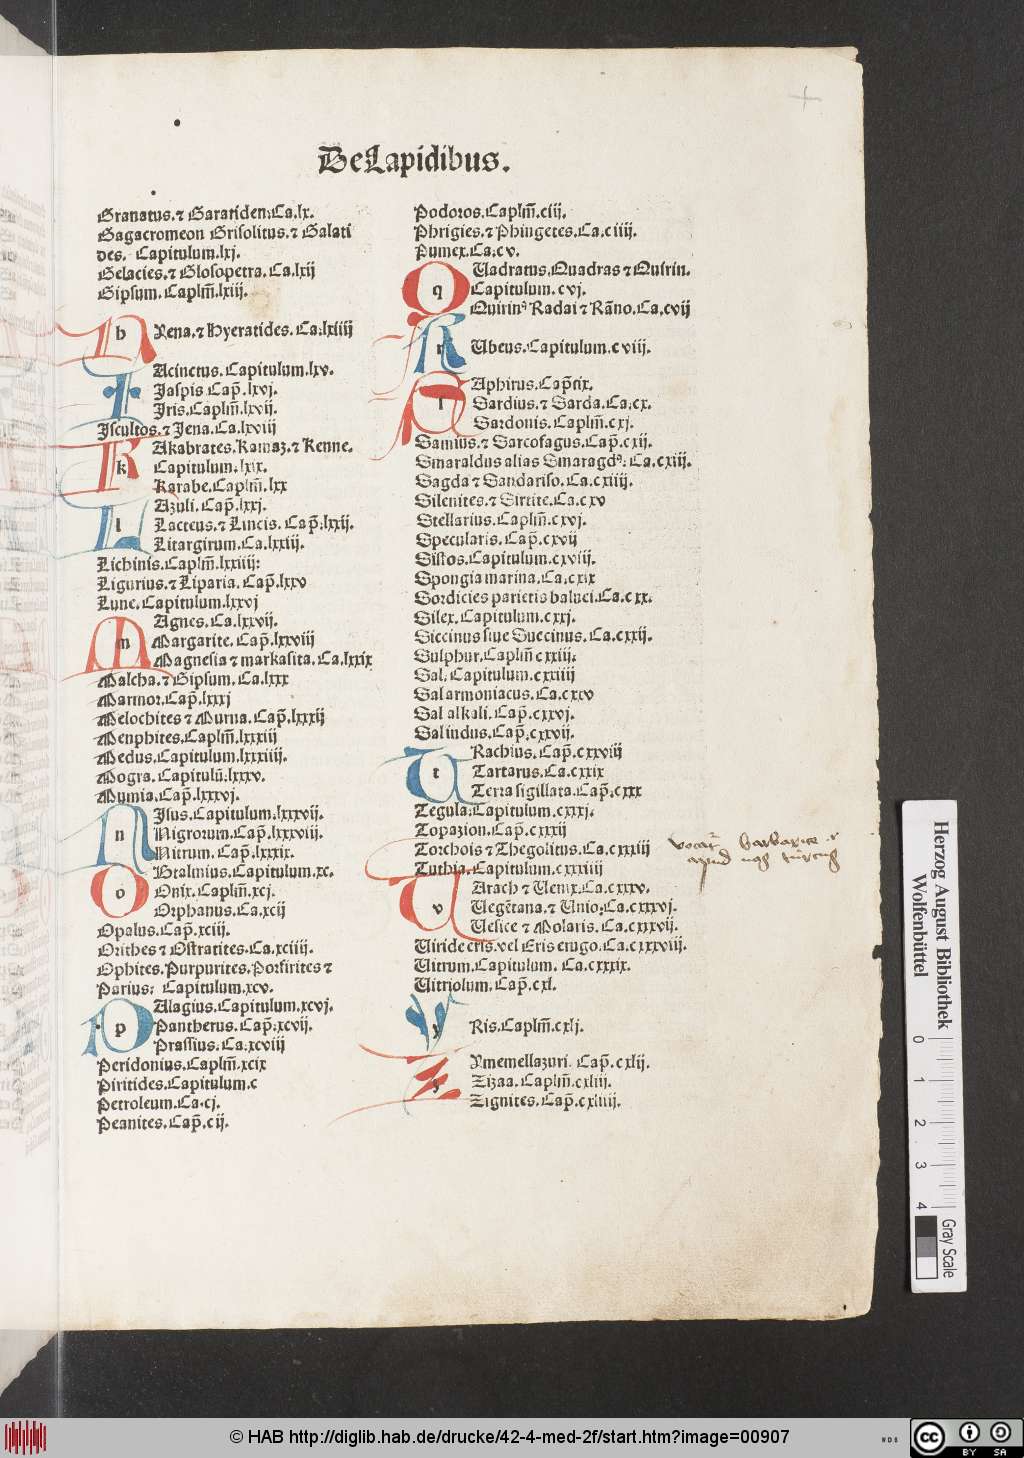 De Lapidibus.
Granatus.⁊ Garatiden.Ca.lx.
Gagacromeon Grisolitus.⁊ Galati
des. Capitulum.lxj.
Gelacies.⁊ Glosopetra.Ca.lxij
Gipsum.Caplm̄.lxiii.
h Yena.⁊ Hyeratides. Ca.lxiiij
Acinctus.Capitulum.lxv.
Jaspis.Cap̄.lxvj.
Jris.Caplm̄.lxvij.
Jscultos.⁊ Jena.Ca.lxviij
Akabrates.Kamaz.⁊ Kenne.
k Capitulum.lxix.
Karabe.Caplm̄.lxx
Azuli.Cap̄.lxxj.
l Lacteus.⁊ Lincis. Cap̄.lxxij.
Litargirum.Ca.lxxiij.
Lichinis.Caplm̄.lxxiiij:
Ligurius.⁊ Liparia.Cap̄.lxxv
Lune.Capitulum.lxxvj
Agnes.Ca.lxxvij.
m Margarite.Cap̄.lxxviij
Magnesia ⁊ markasita.Ca.lxxix
Malcha.⁊ Gipsum.Ca.lxxx
Marmor.Cap̄.lxxxj
Melochites ⁊ Murna.Cap̄.lxxxij
Menphites.Caplm̄.lxxxiij
Medus.Capitulum.lxxxiiij.
Mogra.Capitulū.lxxxv.
Mumia.Cap̄.lxxxvj.
Jsus.Capitulum.lxxxvij.
n Nigrorum.Cap̄.lxxxviij.
Nitrum.Cap̄.lxxxix.
Btalmius.Capitulum.xc.
o Onix.Caplm̄.xcj.
Orphanus.Ca.xcij
Opalus.Cap̄.xciij.
Orithes ⁊ Ostratites.Ca.xciiij.
Ophites.Purpurites.Porfirites ⁊
Parius: Capitulum.xcv.
Alagius.Capitulum.xcvj.
p Pantherus.Cap̄.xcvij.
Prassius.Ca.xcviij
Peridonius.Caplm̄.xcix
Piritides.Capitulum.c
Petroleum.Ca.cj.
Peanites.Cap̄.cij.
Podoros.Caplm̄.ciij.
Phrigies.⁊ Phingetes.Ca.ciiij.
Pumex.Ca.cv.
Uadratus.Quadras ⁊ Quirin.
q Capitulum.cvj.
Quirinꝰ Radai ⁊ Rāno.Ca.cvij
r Ubeus.Capitulum.cviij.
Aphirus.Cap̄.cix.
ſ Sardius.⁊ Sarda.Ca.cx.
Sardonis.Caplm̄.cxj.
Samius.⁊ Sarcofagus.Cap̄.cxij.
Smaraldus alias Smaragdꝰ.Ca.cxiij.
Sagda ⁊ Sandariso.Ca.cxiiij.
Silenites.⁊ Sirtite.Ca.cxv
Stellarius.Caplm̄.cxvj.
Specularis.Cap̄.cxvij
Sistos.Capitulum.cxviij.
Spongia marina.Ca.cxix
Sordicies parietis balnei.Ca.cxx.
Silex.Capitulum.cxxj.
Siccinus siue Succinus.Ca.cxxij.
Sulphur.Caplm̄ cxxiij.
Sal.Capitulum.cxxiiij
Sal armoniacus.Ca.cxxv
Sal alkali.Cap̄.cxxvj.
Sal indus.Cap̄.cxxvij.
Rachius.Cap̄.cxxviij
t Tartarus.Ca.cxxix
Terra sigillata.Cap̄.cxxx
Tegula.Capitulum.cxxxj.
Topazion.Cap̄.cxxxij
Torchois ⁊ Thegolitus.Ca.cxxxiij
Tuthia.Capitulum.cxxxiiij
Arach ⁊ Uenix.Ca.cxxxv.
v Uegētana.⁊ Unio.Ca.cxxxvj.
Uesice ⁊ Molaris.Ca.cxxxvij.
Uiride eris.vel Eris erugo.Ca.cxxxviij.
Uitrum.Capitulum. Ca.cxxxix.
Uitriolum.Cap̄.cxl.
y Ris.Caplm̄.cxlj.
Ymemellazuri. Cap̄.cxlij.
z Zizaa.Caplm̄.cxliij.
Zignites.Cap̄.cxliiij.
barbarice
Herzog August Bibliothek
Wolfenbüttel
0 1 2 3 4
Gray Scale
© HAB http://diglib.hab.de/drucke/42-4-med-2f/start.htm?image=00907
WDB
cc BY SA